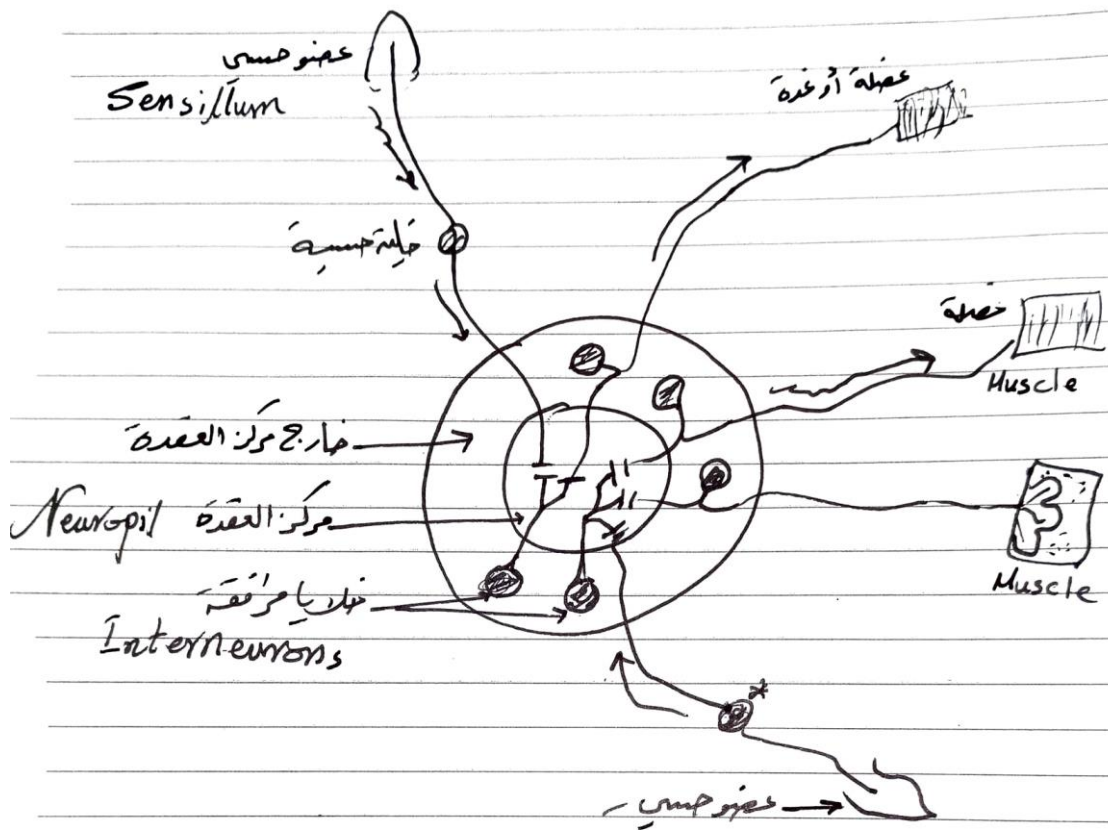 عضو حسى
Sensillum
عضلة أو غدة
خلية حسية
عضلة
Muscle
خارج مركز العقدة
Neuropil مركز العقدة
Muscle
خلايا مرافقة
Interneurons
*
عضو حسى